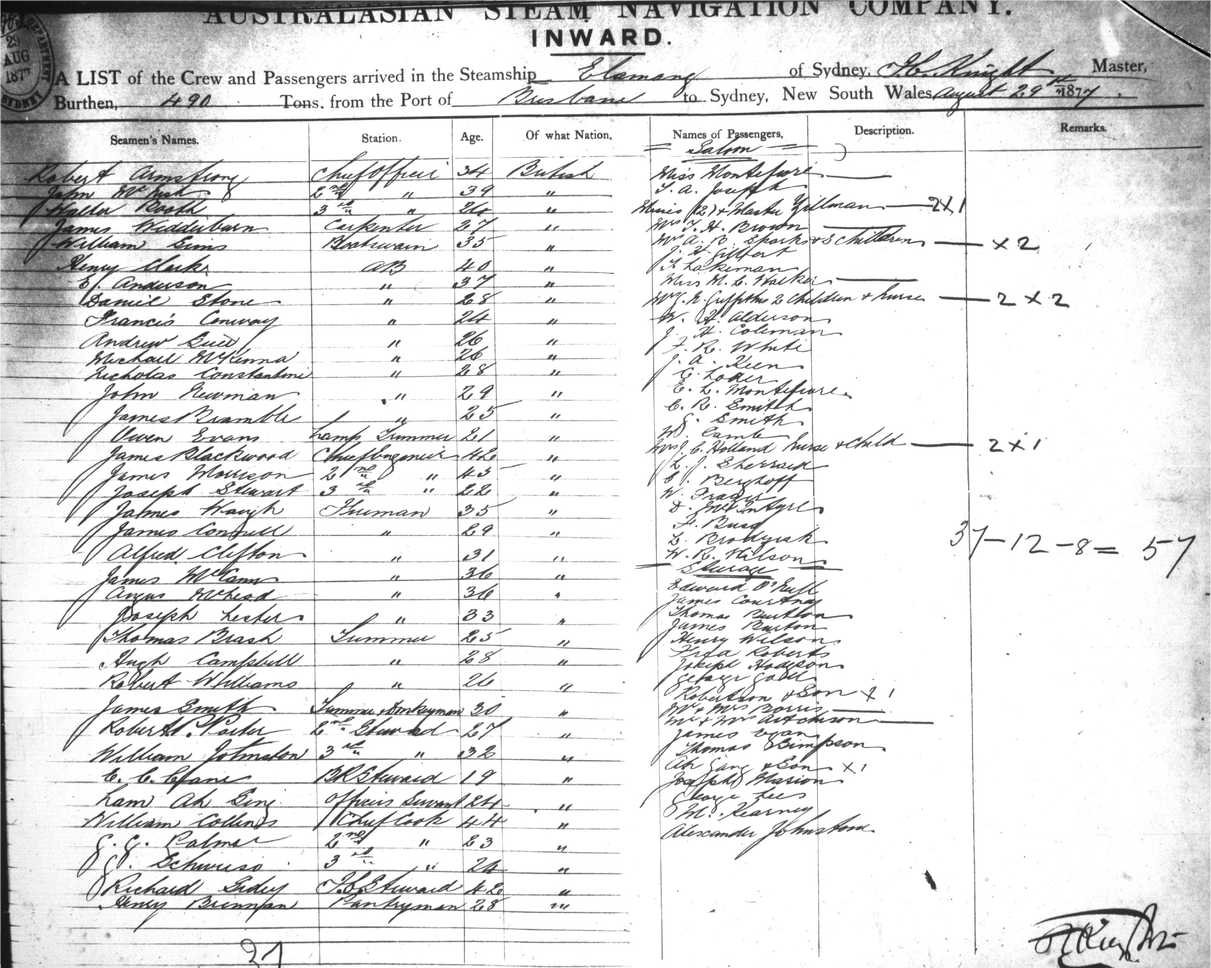 AUSTRALASIAN STEAM NAVIGATION COMPANY.
INWARD.
29
AUG
1877
SYDNEY
A LIST of the Crew and Passengers arrived in the Steamship Elamang of Sydney, Knight Master,
Burthen, 490 Tons, from the Port of Brisbane to Sydney, New South Wales August 29th 1877.
Seamen's Names. Station. Age. Of what Nation. Names of Passengers, Description. Remarks.
Saloon
Robert Armstrong Chief Officer 34 British Miss Montefiore
John 2nd " 39 " T. A. Joseph
Walter Booth 3rd " 26 " (2) & Master Gillman 2 x 1
James Widderburn Carpenter 27 " Mrs T. H. Brown
William Sims Boatswain 35 " Mrs A. B. Sparks & 3 children x 2
J. H. Gilbert
Henry Clark AB 40 " T. Lakeman
E. Anderson " 37 " Miss M. E. Walker
Daniel Stone " 28 " Griffiths 2 children & nurse 2 x 2
Francis Conway " 24 " W. H. Alderson
Andrew " 26 " J. H. Coleman
Michael McKenna " 26 " F. R. White
Nicholas Constantine " 28 " J. A. Keen
John Newman " 29 " G. Loder
E. L. Montefiore
James Bramble " 25 " C. R. Smith
G. Smith
Owen Evans Lamp Trimmer 21 " Lamb
James Blackwood Chief Engineer 42 " Mrs J. C. Holland nurse & child 2 x 1
James Morrison 2nd " 45 " L. J. Sherrard
Joseph Stewart 3rd " 22 " C. Berghoff
James Waugh Fireman 35 " W. Fraser
D. McIntyre
James Connell " 29 " H.
L.
Alfred Clifton " 31 " W. R. Wilson
37 - 12 - 8 = 57
Steerage
James McCann " 36 " Edward O'Neill
Angus McLeod " 36 " James Courtney
Joseph Lester " 33 " Thomas Burton
James Burton
Thomas Brash Trimmer 25 " Henry Wilson
Roberts
Hugh Campbell " 28 " Joseph Hodgson
Robert Williams " 26 " George
Robertson & Son x 1
James Smith Trimmer & Donkeyman 30 " Mr & Mrs
Mr & Mrs Aitchison
Robert Porter 2nd Steward 27 " James
William Johnston 3rd " 32 " Thomas Simpson
Ah & Son x 1
C. C. Crane B.R. Steward 19 " Joseph Marion
Lam Ah Officers Servant 24 " George Lees
William Collins Chief Cook 44 " M. Kearney
G. G. Palmer 2nd " 23 " Alexander Johnstone
3rd " 26 "
Richard Steward 42 "
Henry Brennan Pantryman 28 "
37